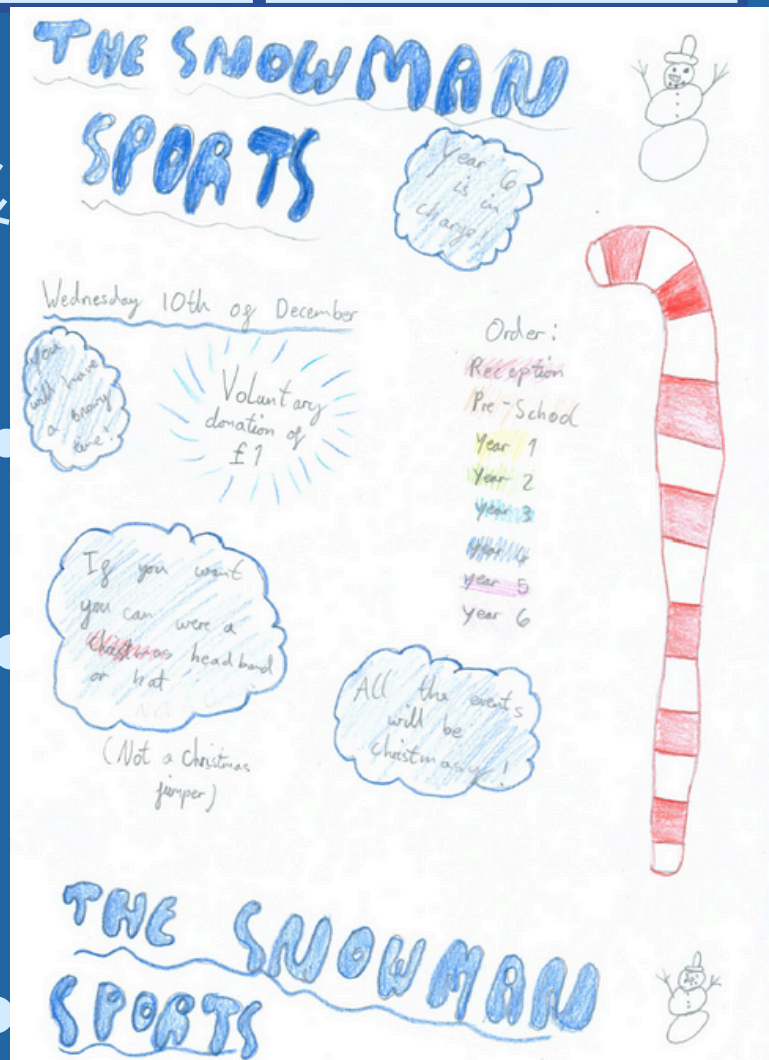 THE SNOWMAN
SPORTS
Year 6
is in
charge!
Wednesday 10th of December
You
will have
a brainy
time!
Voluntary
donation of
£1
Order:
Reception
Pre-School
Year 1
Year 2
Year 3
Year 4
year 5
Year 6
If you want
you can were a
Christmas headband
or hat
(Not a Christmas
jumper)
All the events
will be
christmasy!
THE SNOWMAN
SPORTS